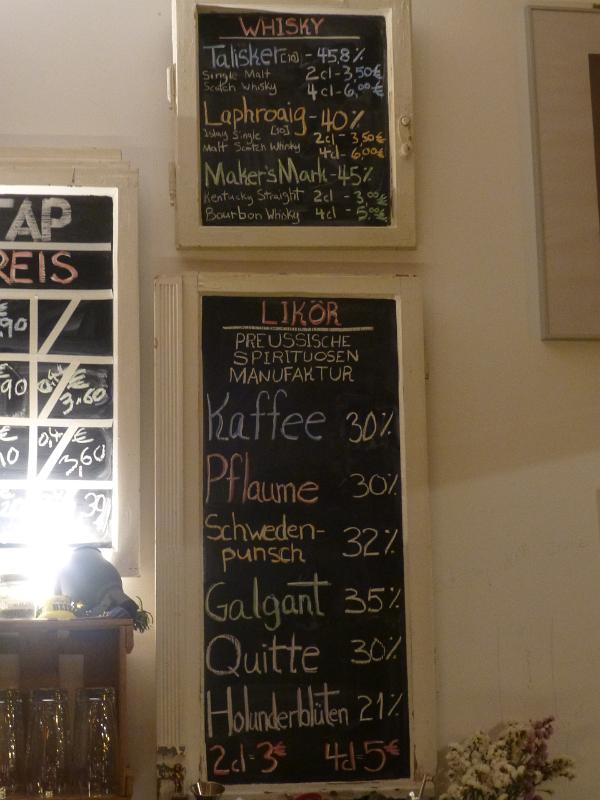 WHISKY
Talisker [10] - 45,8%
Single Malt 2cl - 3,50€
Scotch Whisky 4cl - 6,00€
Laphroaig - 40%
Islay Single [10] 2cl - 3,50€
Malt Scotch Whisky 4cl - 6,00€
Maker's Mark - 45%
Kentucky Straight 2cl - 3,00€
Bourbon Whisky 4cl - 5,00€
TAP
REIS
,90
90 0,4 € 3,60
€ 0,4 € 3,60
10
LIKÖR
PREUSSISCHE
SPIRITUOSEN
MANUFAKTUR
Kaffee 30%
Pflaume 30%
Schweden-
punsch 32%
Galgant 35%
Quitte 30%
Holunderblüten 21%
2cl=3€ 4cl=5€